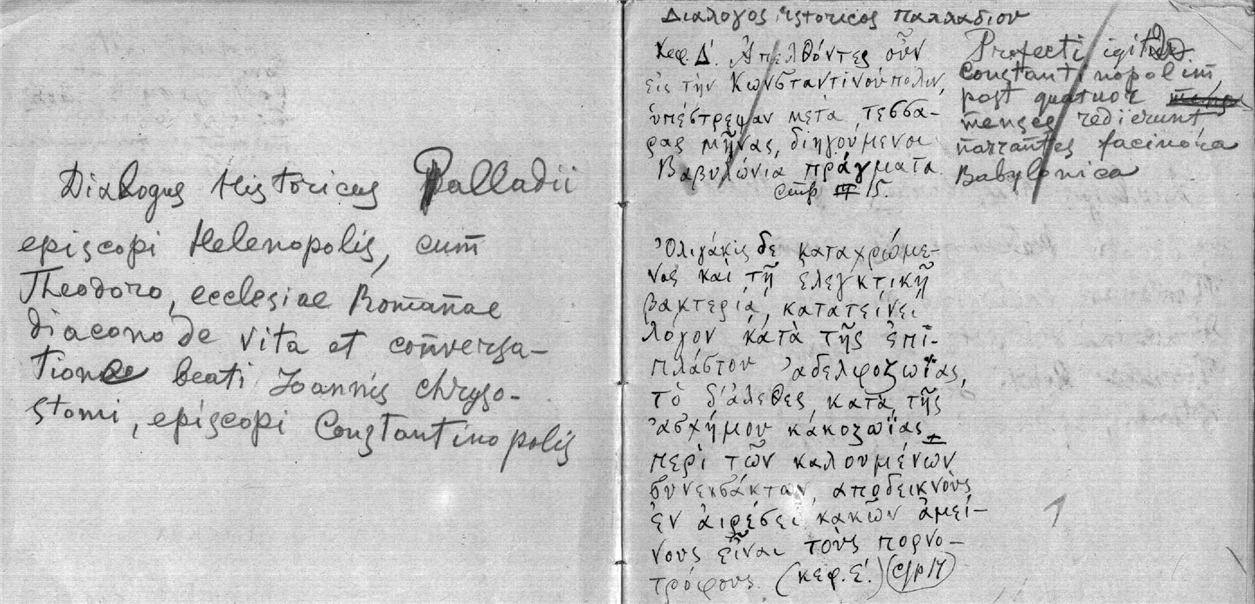 Dialogus Historicus Palladii
episcopi Helenopolis, cum
Theodoro, ecclesiae Romanae
diacono de vita et conversa-
tione beati Joannis chryso-
stomi, episcopi Constantinopolis
Διαλογος ιστοricος Παλλαδιου
Κεφ. Δ'. Ἀπελθόντες οὖν
εἰς τὴν Κωνσταντινούπολιν,
ὑπέστρεψαν μετὰ τεσσα-
ρας μῆνας, διηγούμενοι
Βαβυλώνια πράγματα
стр. 15.
Profecti igitur
Constantinopolim,
post quatuor
menses redierunt
narrantes facinora
Babylonica
Ὀλιγάκις δε καταχρώμε-
νος και τῇ ἐλεγκτικῇ
βακτερίᾳ, κατατείνει
λόγον κατὰ τῆς ἐπι-
πλάστου ἀδελφοζωΐας,
τὸ δ'ἀλεθες, κατὰ τῆς
ἀσχήμου κακοζωΐας
περὶ τῶν καλουμένων
συνεισάκταν, αποδεικνὺς
ἐν αἱρέσει κακῶν ἀμεί-
νους εἶναι τοὺς πορνο-
τρόφους. (κεφ. Ε'.) стр 17
1